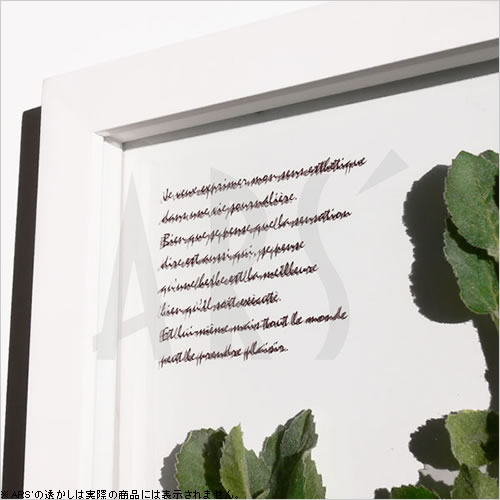 Je veux exprimer mon sens esthétique
dans une vie journalière.
Bien que je pense que la sensation
dise est aussi qui, je pense
qu'une herbe est la meilleure
bien qu'il soit exécuté.
Et lui-même mais tout le monde
peut le prendre plaisir.
ARS'
※ARS'の透かしは実際の商品には表示されません。